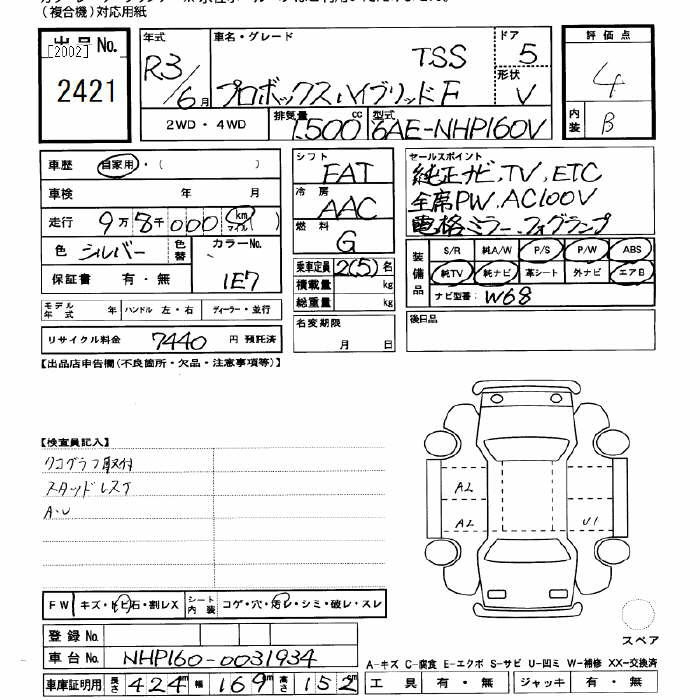 （複合機）対応用紙
出品No.
[2002]
2421
年式
R3/6月
車名・グレード
TSS
プロボックスハイブリッドF
ドア
5
形状
V
評価点
4
内装
B
2WD・4WD
排気量
1,500cc
型式
6AE-NHP160V
車歴
自家用・（　　　）
車検　年　月
走行　9万8千000 km マイル（　）
色　シルバー
色替
カラーNo.
1E7
保証書　有・無
モデル年式　年
ハンドル　左・右
ディーラー・並行
リサイクル料金　7440　円　預託済
シフト
FAT
冷房
AAC
燃料
G
乗車定員　2(5)名
積載量　kg
総重量　kg
名変期限
月　日
セールスポイント
純正ナビ,TV,ETC
全席PW,AC100V
電格ミラー,フォグランプ
装備品
S/R　純A/W　P/S　P/W　ABS
純TV　純ナビ　革シート　外ナビ　エアB
ナビ型番：W68
後日品
【出品店申告欄（不良箇所・欠品・注意事項等）】
【検査員記入】
タコグラフ取付
スタッドレスT
A・U
A2
A2
U1
FW　キズ・トビ石・割レX
シート内装　コゲ・穴・汚レ・シミ・破レ・スレ
スペア
登録No.
車台No.　NHP160-0031934
A-キズ　C-腐食　E-エクボ　S-サビ　U-凹ミ　W-補修　XX-交換済
車庫証明用　長さ　424cm　幅　169cm　高さ　152cm
工具　有・無　ジャッキ　有・無